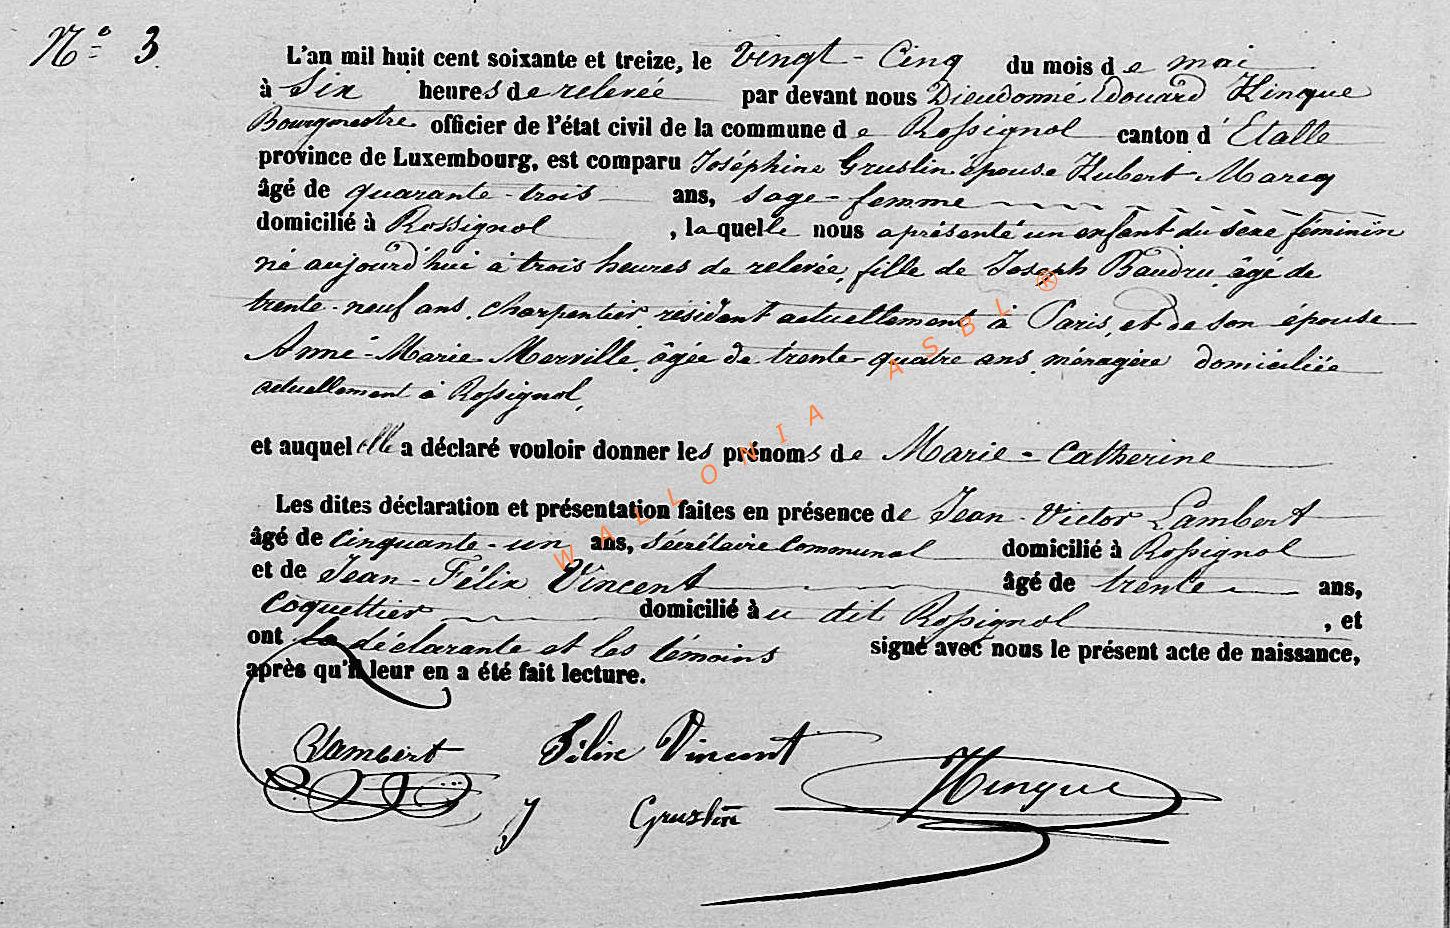 N.º 3.
L'an mil huit cent soixante et treize, le Vingt-Cinq du mois de mai
à Six heures de relevée par devant nous Dieudonné Edouard Hinque
Bourgmestre officier de l'état civil de la commune de Rossignol canton d'Etalle
province de Luxembourg, est comparu Joséphine Gruslin épouse Hubert Marcq
âgé de quarante-trois ans, sage-femme
domicilié à Rossignol, laquelle nous a présenté un enfant du sexe féminin
né aujourd'hui à trois heures de relevée, fille de Joseph Baudru, âgé de
trente-neuf ans, charpentier, résidant actuellement à Paris, et de son épouse
Anne-Marie Merville, âgée de trente-quatre ans, ménagère domiciliée
actuellement à Rossignol,
et auquel elle a déclaré vouloir donner les prénoms de Marie-Catherine
Les dites déclaration et présentation faites en présence de Jean-Victor Lambert
âgé de cinquante-un ans, sécrétaire Communal domicilié à Rossignol
et de Jean-Félix Vincent âgé de trente ans,
Coquettier domicilié àu dit Rossignol, et
ont la déclarante et les témoins signé avec nous le présent acte de naissance,
après qu'il leur en a été fait lecture.
Lambert Félix Vincent Hinque
J Gruslin
WALLONIA ASBL ®